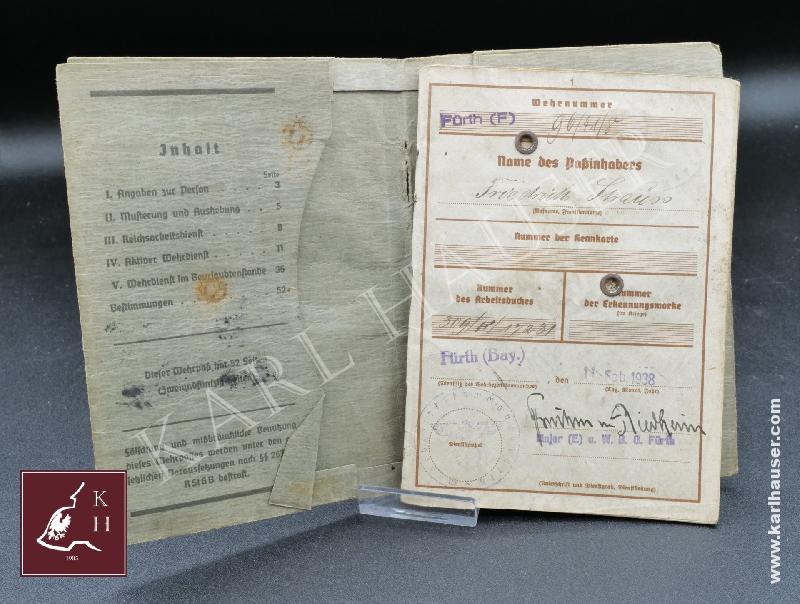 Inhalt
Seite
I. Angaben zur Person . . . . 3
II. Musterung und Aushebung . . 5
III. Reichsarbeitsdienst . . . . 8
IV. Aktiver Wehrdienst . . . . 11
V. Wehrdienst im Beurlaubtenstande 36
Bestimmungen . . . . 52
Dieser Wehrpaß hat 52 Seiten
Fälschung und mißbräuchliche Benutzung
dieses Wehrpasses werden unter den
Voraussetzungen nach §§ 267
RStGB bestraft.
1
Wehrnummer
Fürth (F)
Name des Paßinhabers
Friedrich Strauss
(Rufname, Familienname)
Nummer der Kennkarte
Nummer
des Arbeitsbuches
Nummer
der Erkennungsmarke
(im Kriege)
Fürth (Bay.)
, den
11. Feb. 1938
(Tag, Monat, Jahr)
Major (E) u. W. B. O. Fürth
(Unterschrift und Dienstgrad, Dienststellung)
KARL HAUSER
K
H
1985
www.karlhauser.com